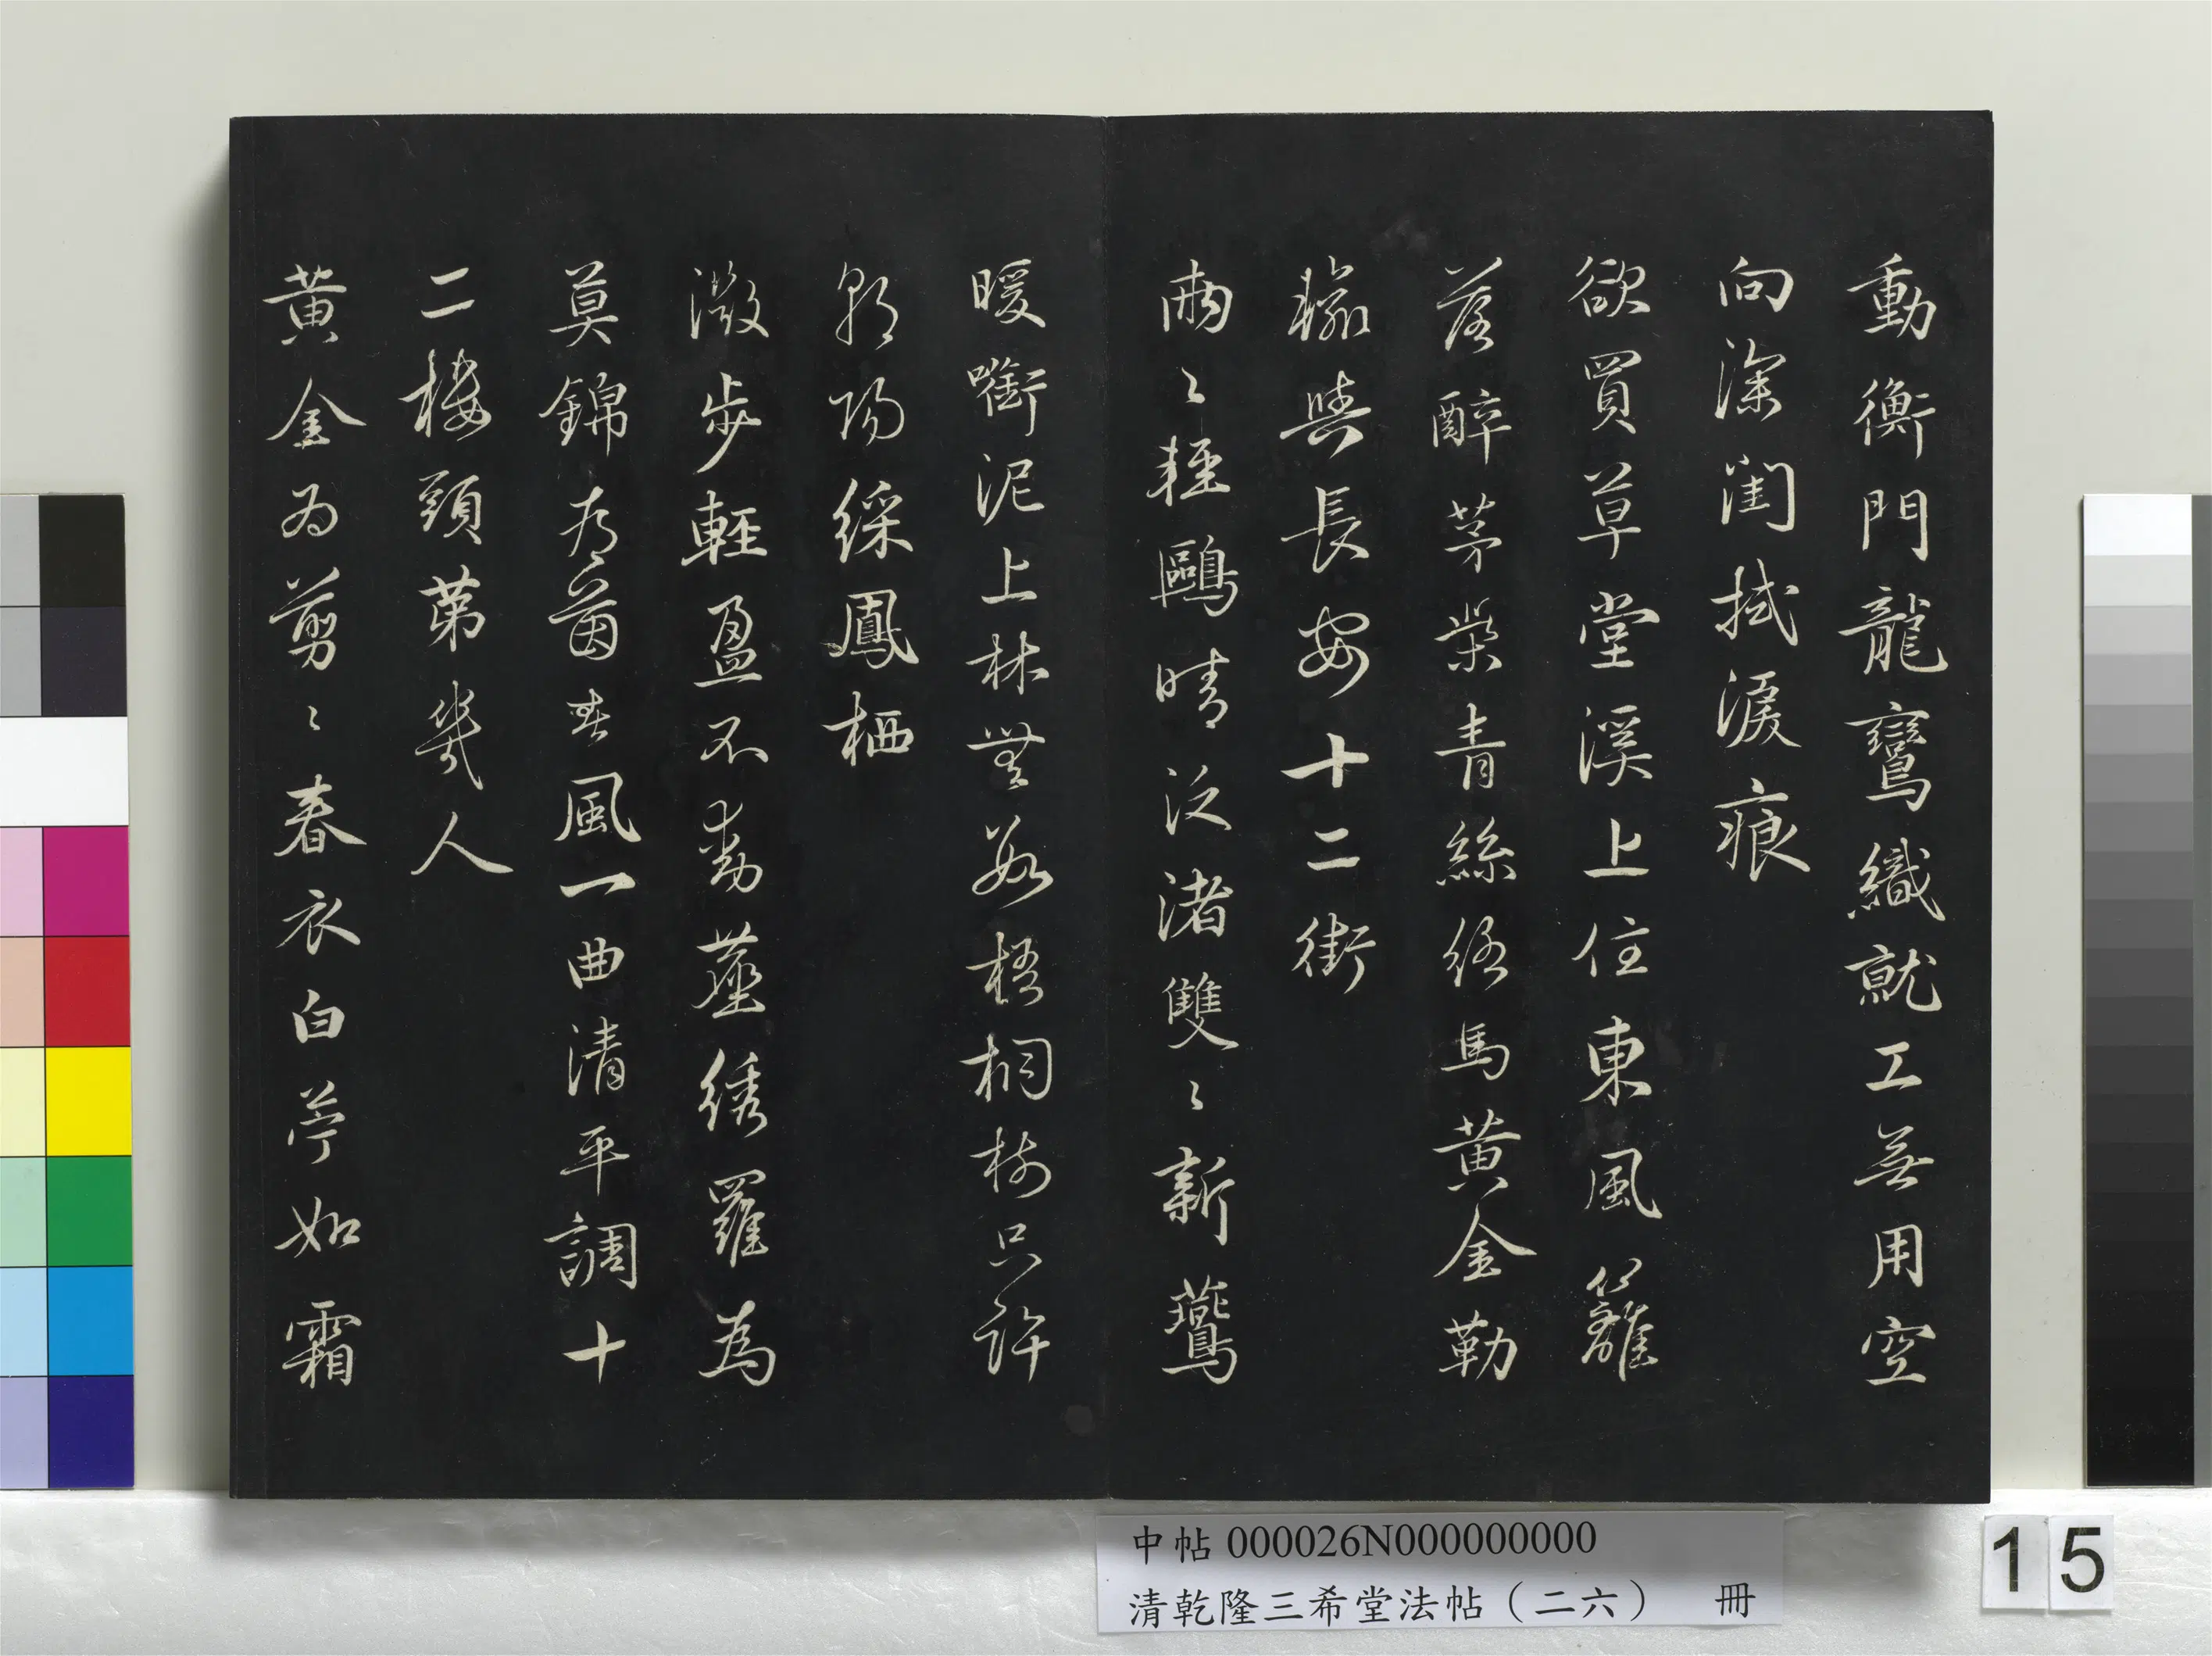 動衡門龍鸞織就工無用空
向深閨拭淚痕
欲買草堂溪上住東風籬
落醉茅柴青絲絡馬黃金勒
輸與長安十二街
兩〻輕鷗晴泛渚雙〻新鷰
暖銜泥上林無數梧桐樹只許
朝陽綵鳳栖
微步輕盈不動塵綉羅為
莫錦為茵春風一曲清平調十
二樓頭第幾人
黃金為剪〻春衣白苧如霜
中帖 000026N000000000
清乾隆三希堂法帖（二六） 冊
15